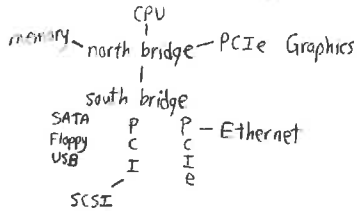 CPU
memory north bridge PCIe Graphics
south bridge
SATA
Floppy
USB
PCI
PCIe
Ethernet
SCSI